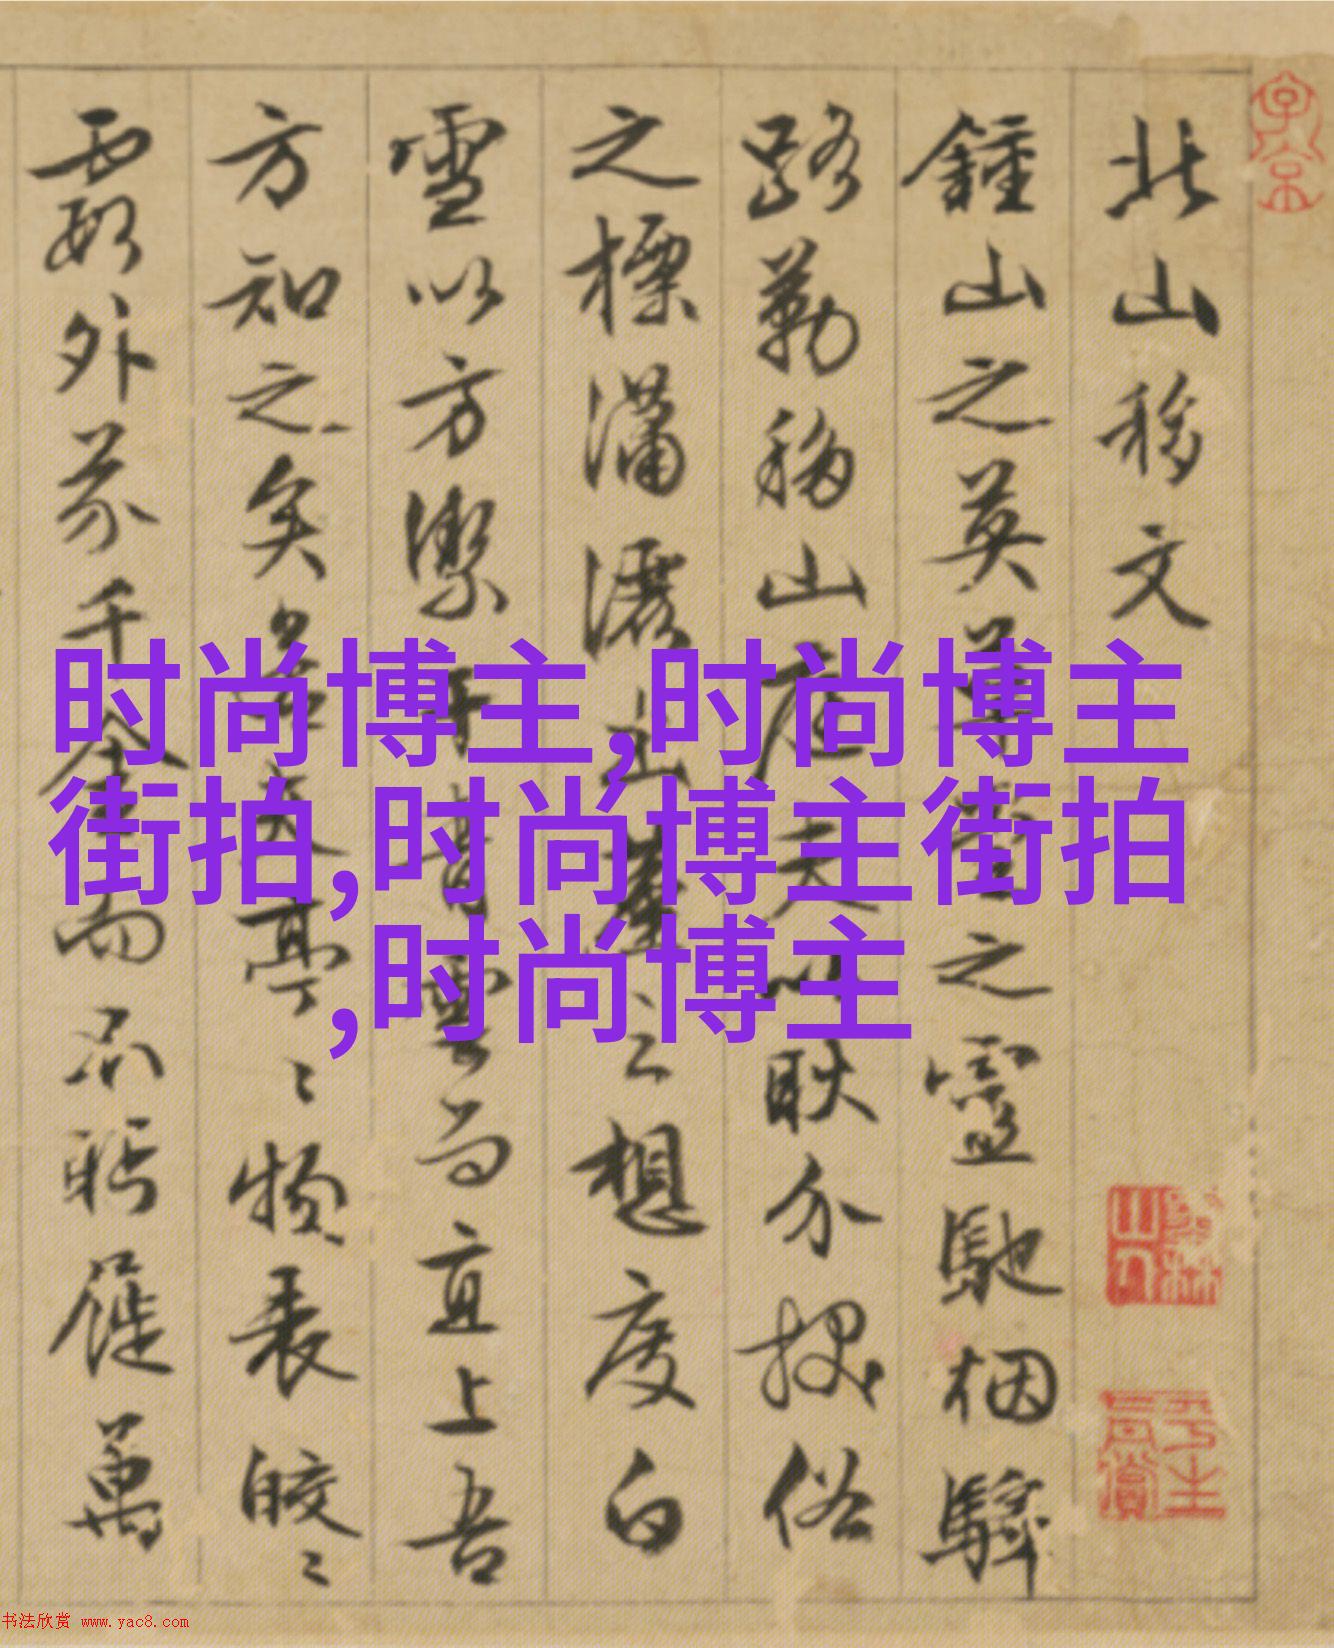 北山移文
鍾山之英草堂之靈馳烟驛
路勒移山庭夫以耿介拔俗
之標瀟灑出塵之想度白
雪以方潔干青雲而直上吾
方知之矣若其亭〻物表皎〻
霞外芥千金而不眄屣萬
时尚博主,时尚博主
街拍,时尚博主街拍
,时尚博主
书法欣赏 www.yac8.com